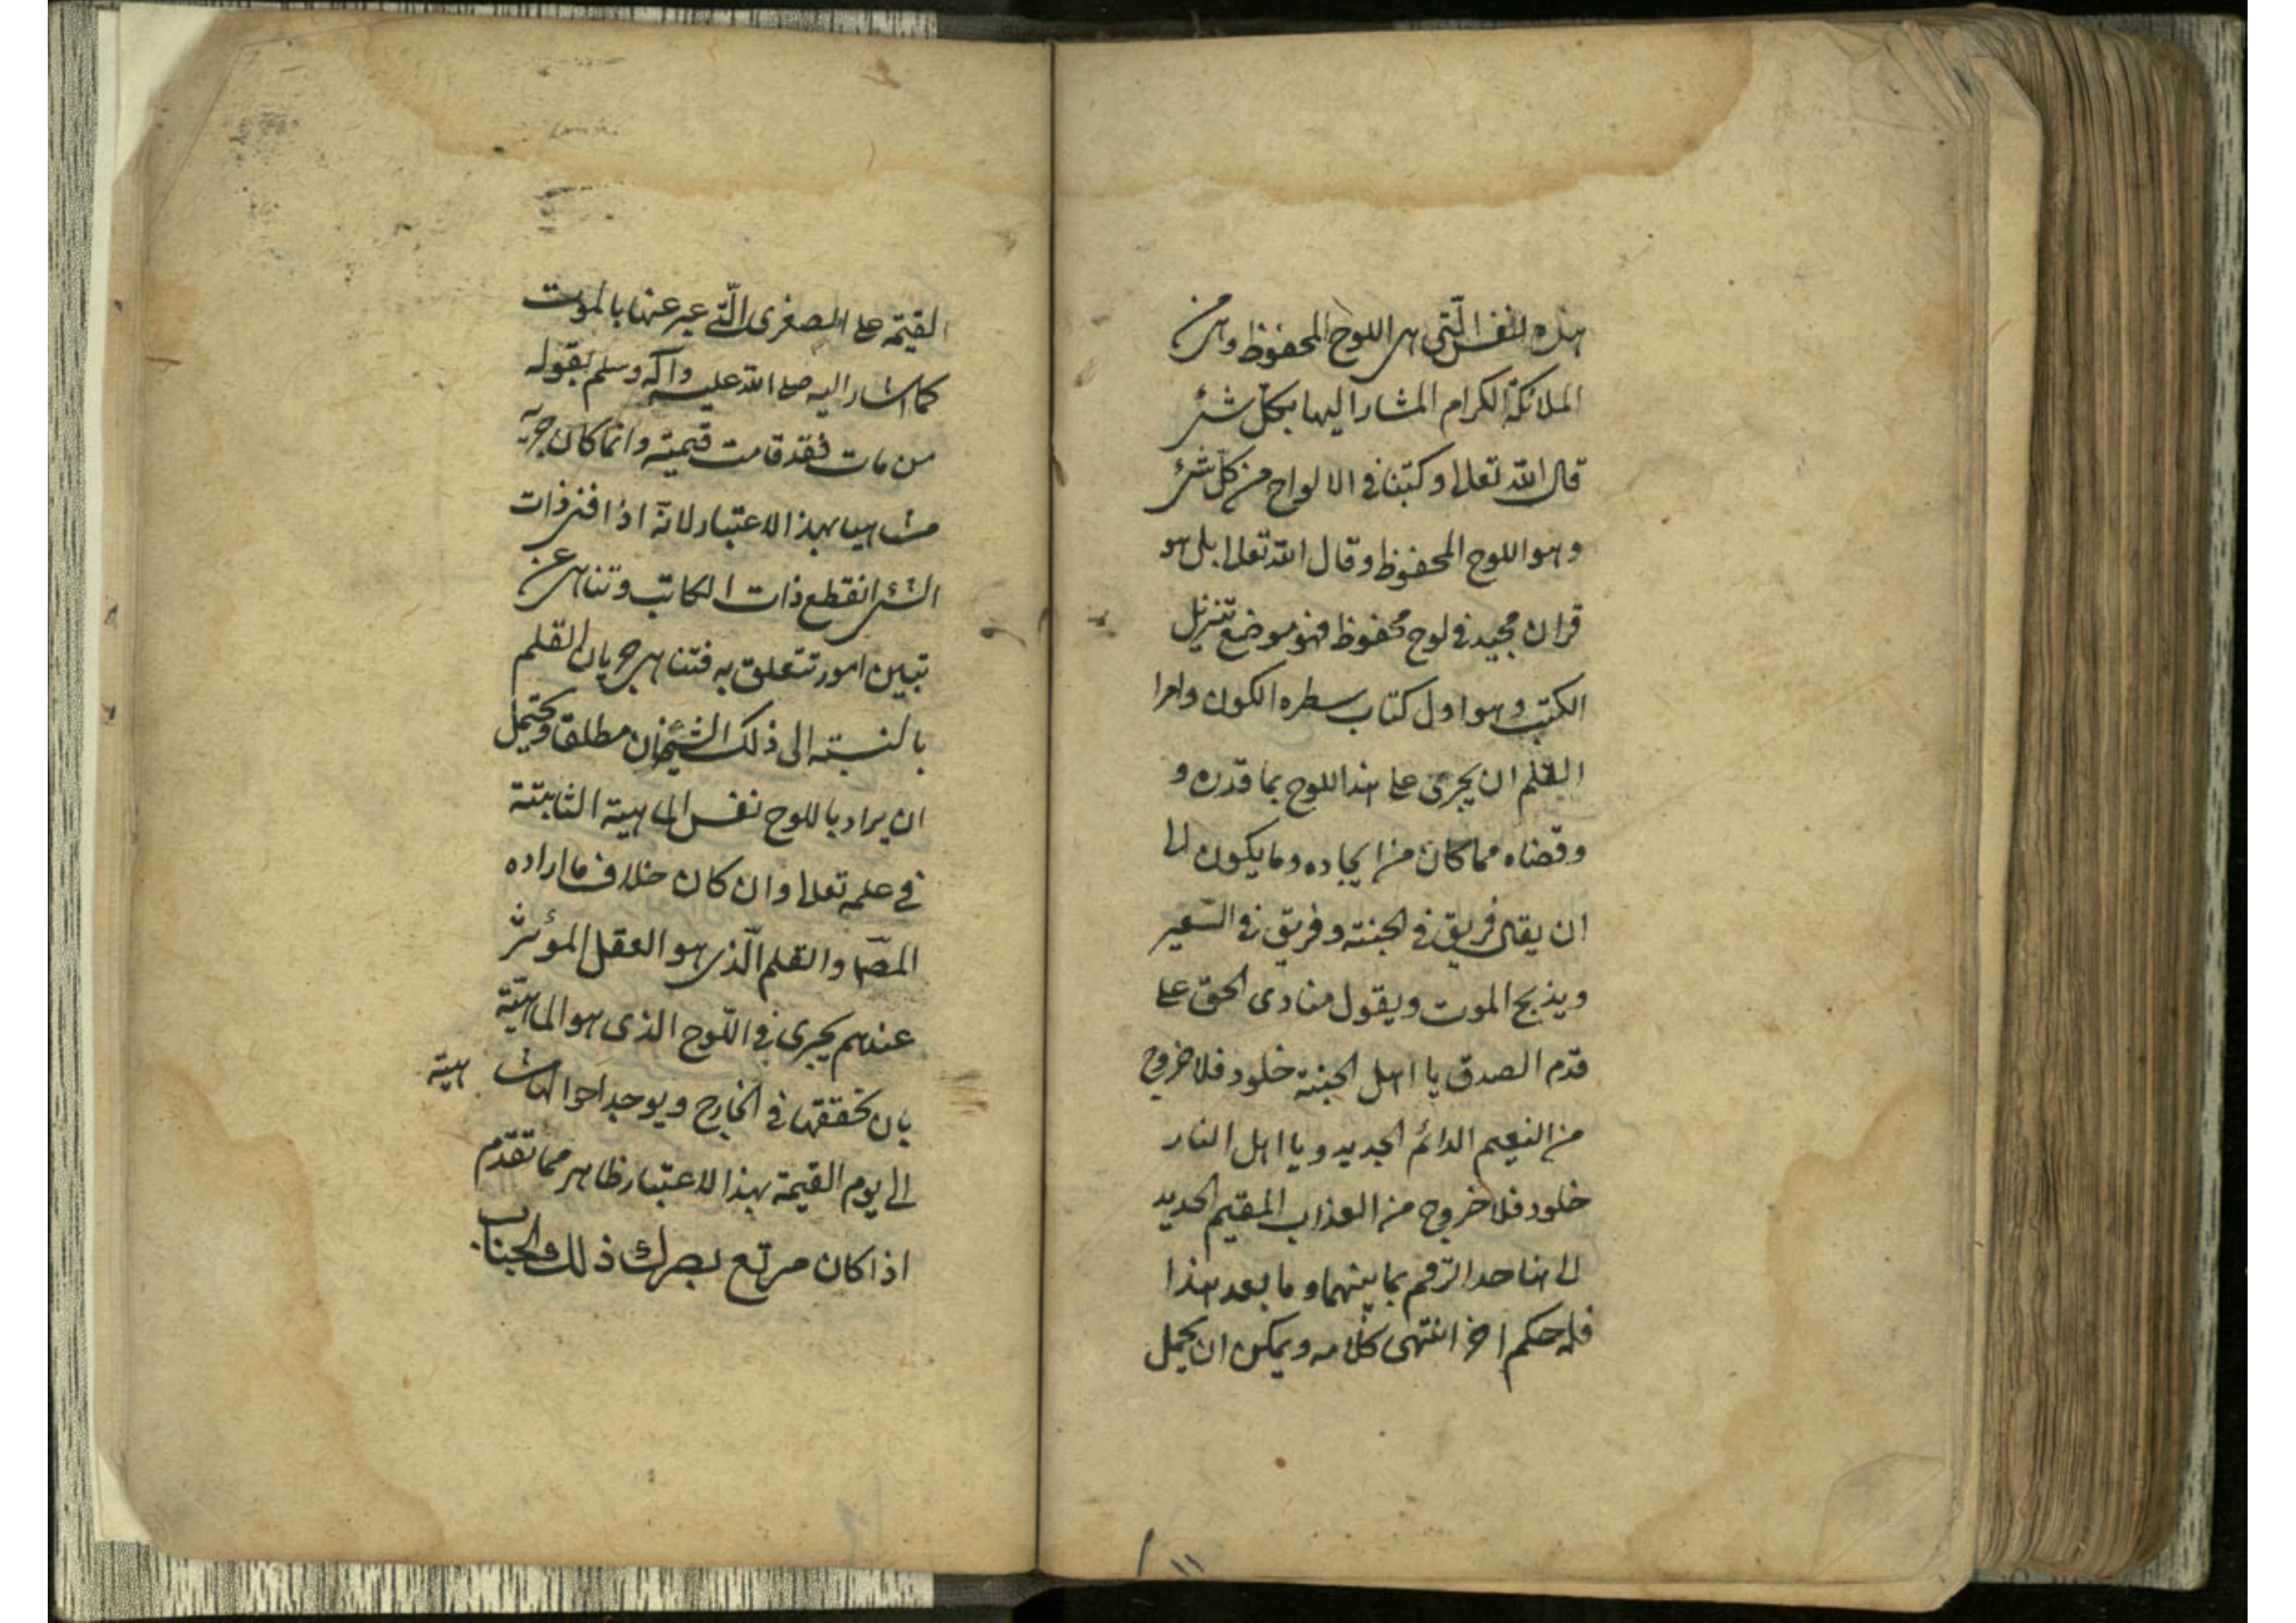 هذه النفس الّتى هى اللوح المحفوظ وهى من
الملائكة الكرام المشار اليها بكلّ شئ
قال الله تعالى وكتبنا فى الالواح من كلّ شئ
وهو اللوح المحفوظ وقال الله تعالى بل هو
قران مجيد فى لوح محفوظ فهو موضع تنزيل
الكتب وهو اول كتاب سطره الكون وامرا
القلم ان يجرى على هذا اللوح بما قدره و
وقضاه مما كان من ايجاده وما يكون الى
ان يقال فريق فى الجنة وفريق فى السّعير
ويذبح الموت ويقول منادى الحق على
قدم الصدق يا اهل الجنة خلود فلا خروج
من النعيم الدائم الجديد ويا اهل النار
خلود فلا خروج من العذاب المقيم الجديد
الى هنا حد الرّقم بما بينهما وما بعد هذا
فله حكم اخر انتهى كلامه ويمكن ان يحمل
القيمة على الصغرى الّتى عبر عنها بالموت
كما اشار اليه صلى الله عليه واله وسلم بقوله
من مات فقد قامت قيمته وانّما كان جريه
متناهيا بهذا الاعتبار لانّه اذا افنى ذات
الشئ انقطع ذات الكاتب وتناهى عن
تبيين امور تتعلق به فتناهى جريان القلم
بالنسبته الى ذلك الشئ مطلقا ويحتمل
ان يراد باللوح نفس الماهية الثابتة
فى علمه تعالى وان كان خلاف ما اراده
المص والقلم الّذى هو العقل المؤثر
عندهم يجرى فى اللّوح الذى هو الماهيّة
بان تحققها فى الخارج ويوجد احوالها
هيته
الى يوم القيمة بهذا الاعتبار ظاهر مما تقدّم
اذا كان مرتع بصرك ذلك الجناب
١١